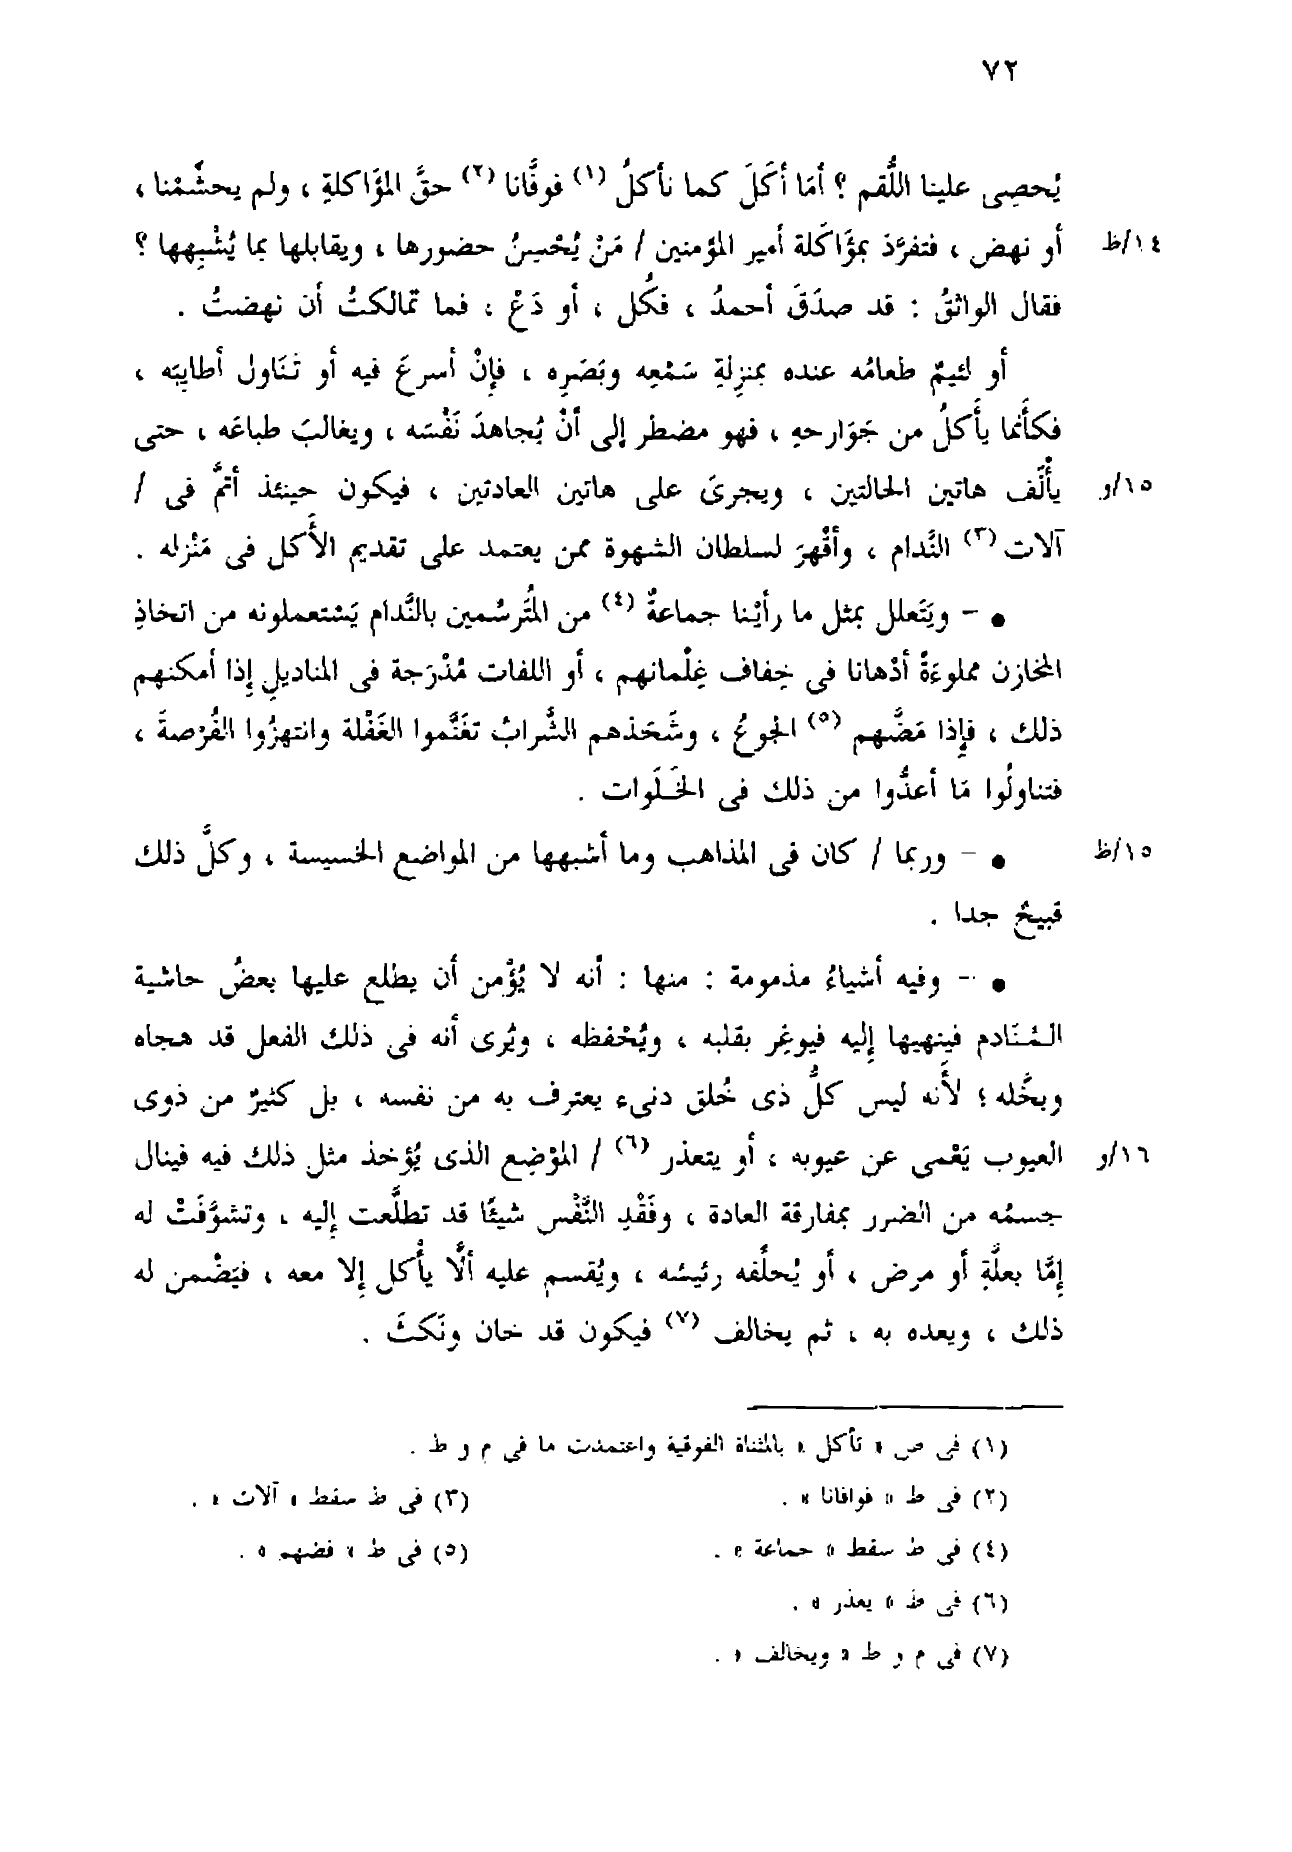 ٧٢
يُحصِى علينا اللُّقم ؟ أمَا أكَلَ كما نأكلُ (١) فوفَّانا (٢) حقَّ المؤَاكلةِ ، ولم يحشَمْنا ،
أو نهض ، فتفرَّدَ بمؤَاكَلة أمير المؤمنين / مَنْ يُحْسِنُ حضورها ، ويقابلها بما يُشْبِهها ؟ ١٤/ظ
فقال الواثقُ : قد صدَقَ أحمدُ ، فكُل ، أو دَعْ ، فما تمالكتُ أن نهضتُ .
أو لئيمٌ طعامُه عنده بمنزلةِ سَمْعِه وبَصَرِه ، فإنْ أسرعَ فيه أو تنَاول أطايبَه ،
فكأَنما يأكلُ من جَوَارحهِ ، فهو مضطر إلى أنْ يُجاهدَ نَفْسَه ، ويغالبَ طباعَه ، حتى
يأْلَف هاتين الحالتين ، ويجرىَ على هاتين العادتين ، فيكون حينئذ أتمَّ فى / ١٥/و
آلات (٣) النَّدام ، وأقْهرَ لسلطان الشهوة ممن يعتمد على تقديم الأَكل فى مَنْزله .
● - ويَتَعلل بمثل ما رأيْنا جماعةٌ (٤) من المُتَرسِّمين بالنَّدام يَسْتعملونه من اتخاذِ
المخازن مملوءَةً أدْهانا فى خِفاف غِلْمانهم ، أو اللفات مُدْرَجة فى المناديلِ إِذا أمكنهم
ذلك ، فإِذا مَضَّهم (٥) الجوعُ ، وشَحَذهم الشَّرابُ تغَنَّموا الغَفْلة وانتهزُوا الفُرْصةَ ،
فتناولُوا مَا أعدُّوا من ذلك فى الخَلَوات .
● - وربما / كان فى المذاهب وما أشبهها من المواضع الخسيسة ، وكلُّ ذلك ١٥/ظ
قبيحٌ جدا .
● - وفيه أشياءُ مذمومة : منها : أنه لا يُؤْمن أن يطلع عليها بعضُ حاشية
المُنَادم فينهيها إِليه فيوغِر بقلبه ، ويُحْفظه ، ويُرى أنه فى ذلك الفعل قد هجاه
وبخَّله ؛ لأَنه ليس كلُّ ذى خُلق دنىء يعترف به من نفسه ، بل كثيرٌ من ذوى
العيوب يَعْمى عن عيوبه ، أو يتعذر (٦) / الموْضِع الذى يُؤخذ مثل ذلك فيه فينال ١٦/و
جسمُه من الضرر بمفارقة العادة ، وفَقْدِ النَّفْس شيئًا قد تطلَّعت إِليه ، وتشوَّفَتْ له
إِمَّا بعلَّةٍ أو مرض ، أو يُحلِّفه رئيسُه ، ويُقسم عليه ألَّا يأْكل إِلا معه ، فيَضْمن له
ذلك ، ويعده به ، ثم يخالف (٧) فيكون قد خان ونَكثَ .
(١) فى ص « تأكل » بالمثناة الفوقية واعتمدت ما فى م و ط .
(٢) فى ط « فوافانا » . (٣) فى ط سقط « آلات » .
(٤) فى ط سقط « جماعة » . (٥) فى ط « فضهم » .
(٦) فى ط « يعذر » .
(٧) فى م و ط « ويخالف » .